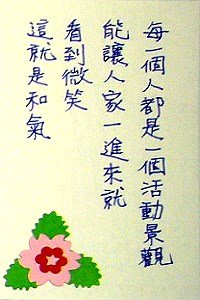 每一個人都是一個活動景觀
能讓人家一進來就
看到微笑
這就是和氣